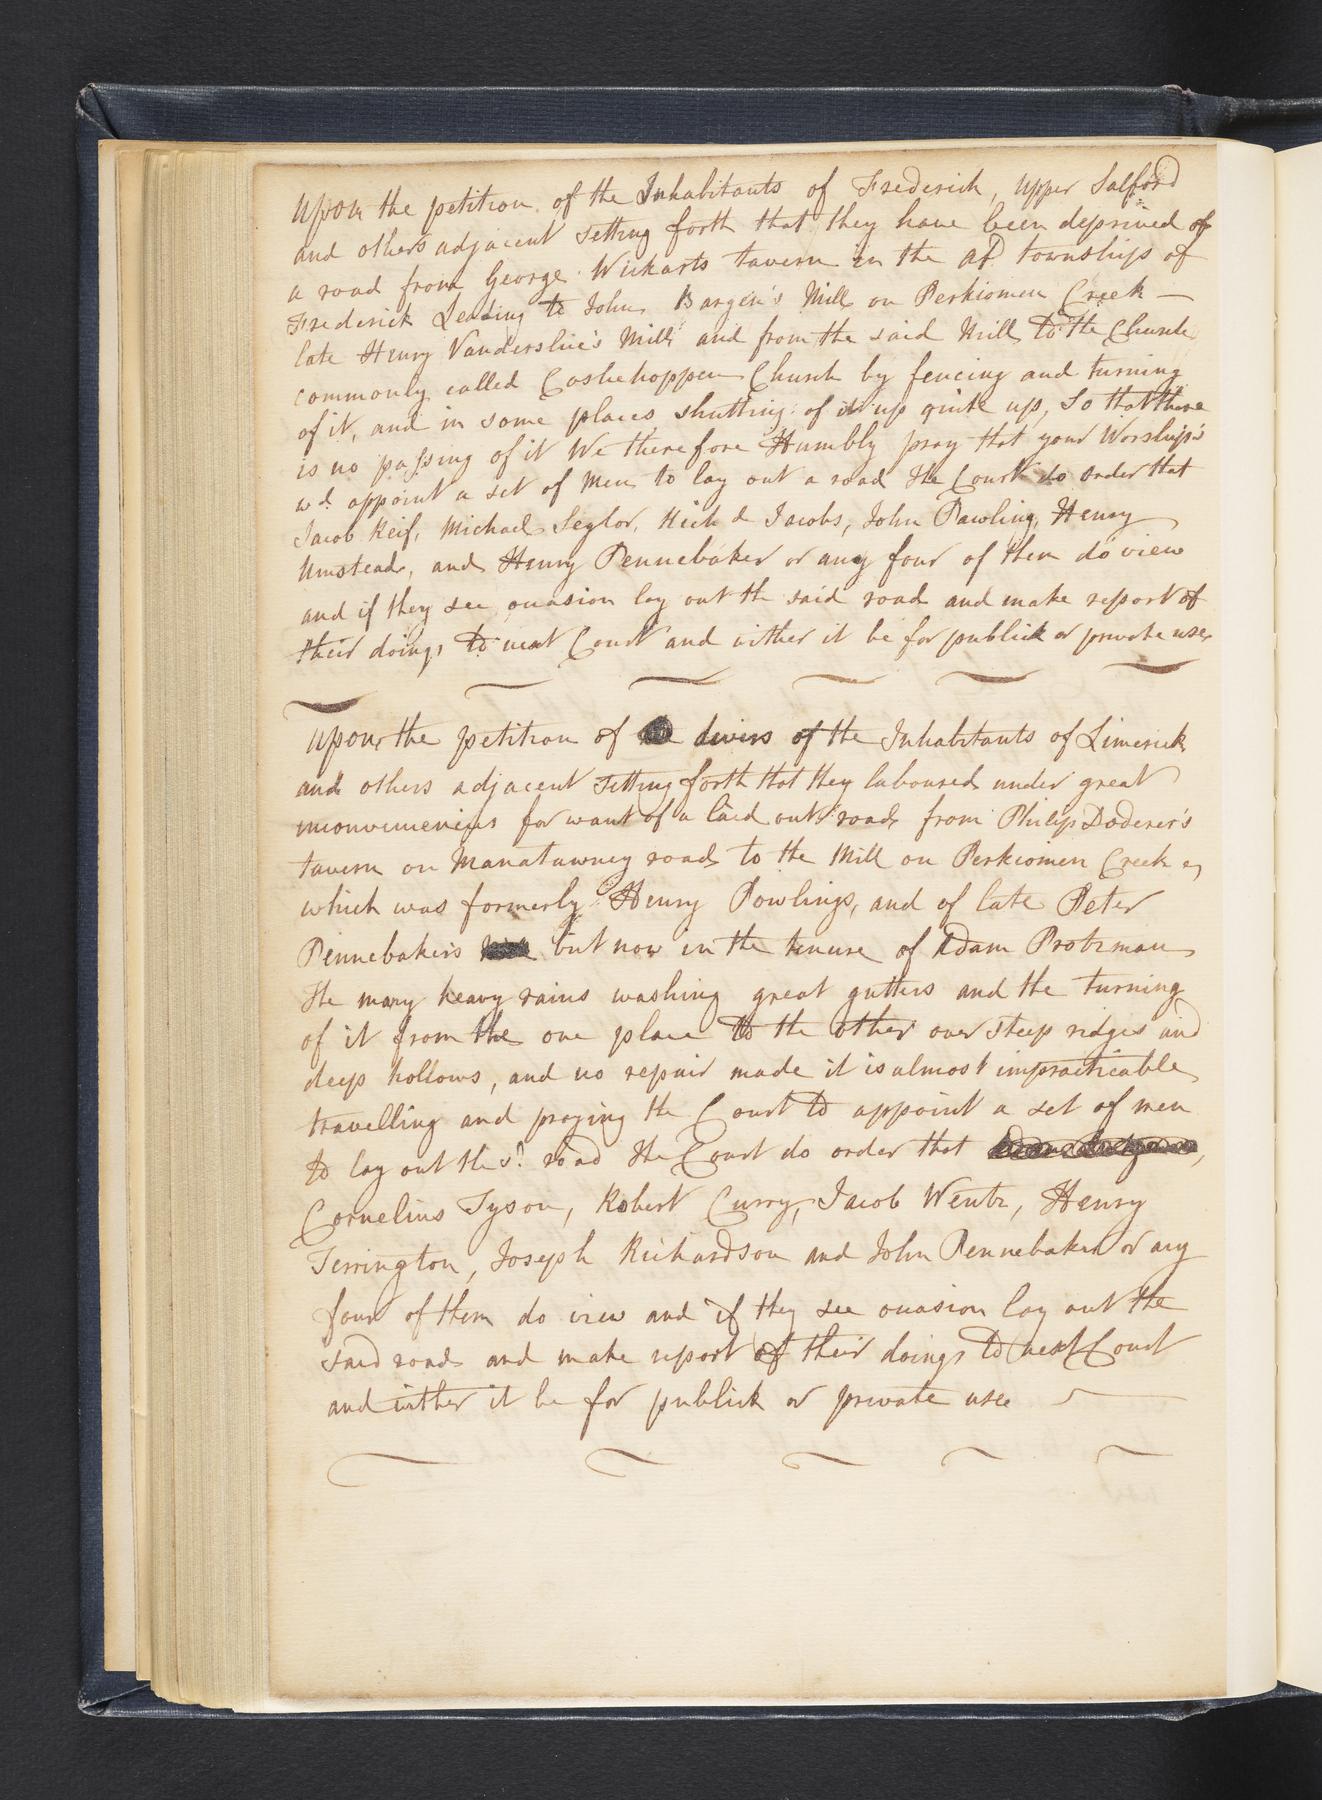 Upon the petition of the Inhabitants of Frederick, Upper Salford
and others adjacent setting forth that they have been deprived of
a road from George Wickarts tavern in the afd townships of
Frederick Leading to John Bargen's Mill on Perkiomen Creek —
late Henry Vanderslice's Mill and from the said Mill to the Church
commonly called Coshehoppen Church by fencing and turning
of it, and in some places shutting of it up quite up, So that there
is no passing of it We therefore Humbly pray that your Worship's
wd. appoint a set of Men to lay out a road The Court do order that
Jacob Reif, Michael Seglor, Jacobs, John Pawling, Henry
Umstead, and Henry Pennebaker or any four of them do view
and if they see occasion lay out the said road and make report of
their doings to next Court and wither it be for publick or private use
Upon the petition of divers of the Inhabitants of Limerick
and others adjacent Setting forth that they laboured under great
inconveniencies for want of a laid out road from Philip Doderer's
tavern on Manatawney road to the Mill on Perkiomen Creek
which was formerly Henry Powlings, and of late Peter
Pennebakers but now in the tenure of Adam Protzman
The many heavy rains washing great gutters and the turning
of it from the one place to the other over steep ridges and
deep hollows, and no repair made it is almost impracticable
travelling and praying the Court to appoint a set of men
to lay out the sd. road The Court do order that
Cornelius Tyson, Robert Curry, Jacob Wentz, Henry
Terrington, Joseph Richardson and John Pennebaker or any
four of them do view and if they see occasion lay out the
said road and make report of their doings to next Court
and wither it be for publick or private use